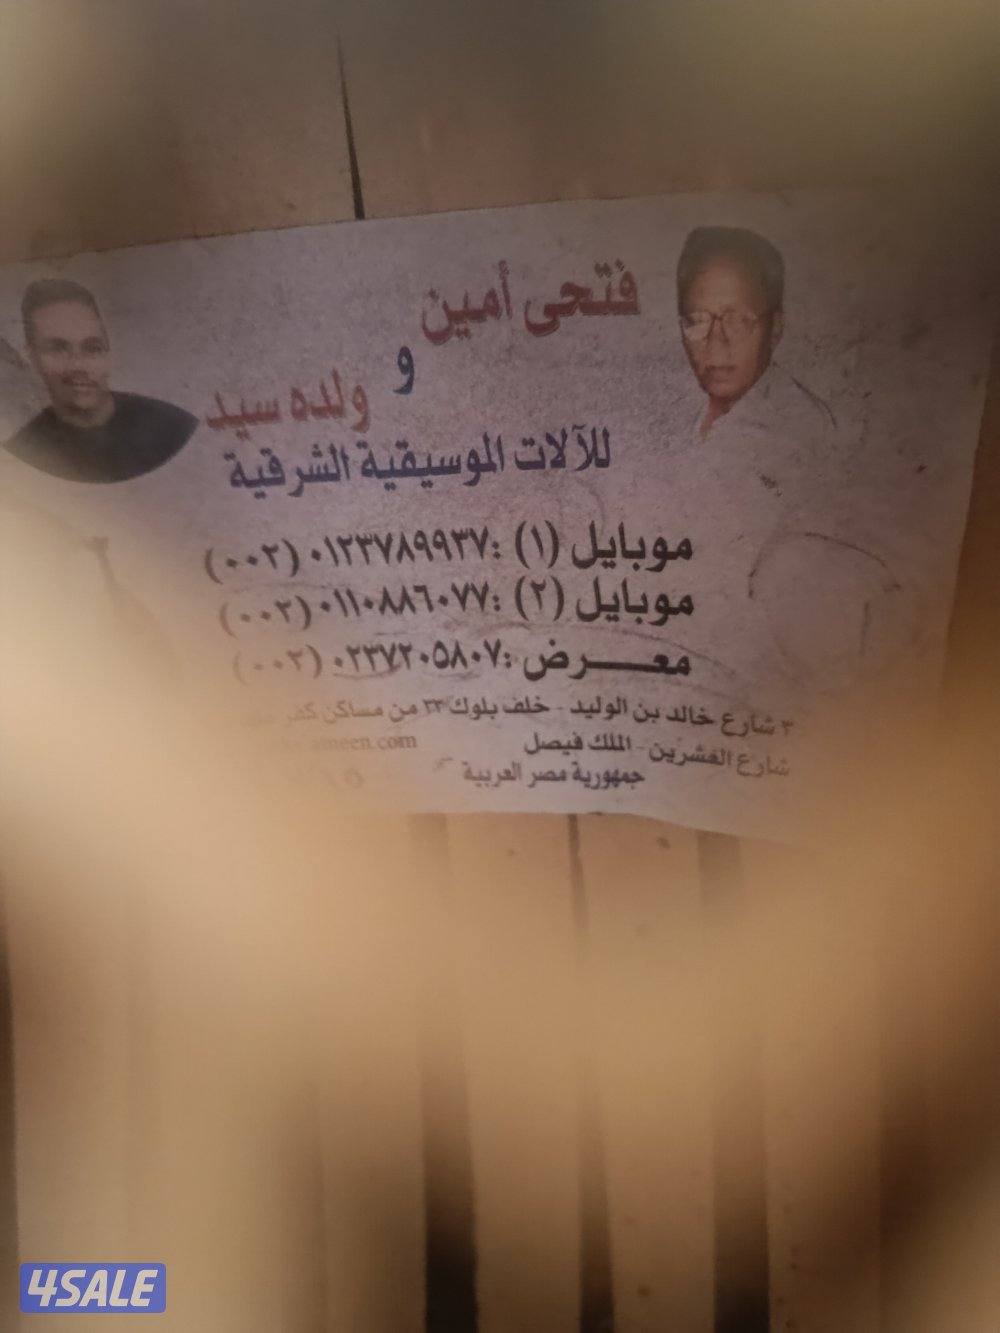 فتحى أمين
و
ولده سيد
للآلات الموسيقية الشرقية
موبايل (١) :٠١٢٣٧٨٩٩٣٧ (٠٠٢)
موبايل (٢) :٠١١٠٨٨٦٠٧٧ (٠٠٢)
معـــرض :٠٢٣٧٢٠٥٨٠٧ (٠٠٢)
٣ شارع خالد بن الوليد - خلف بلوك ٣٣ من مساكن كفر
شارع العشرين - الملك فيصل
جمهورية مصر العربية
4SALE